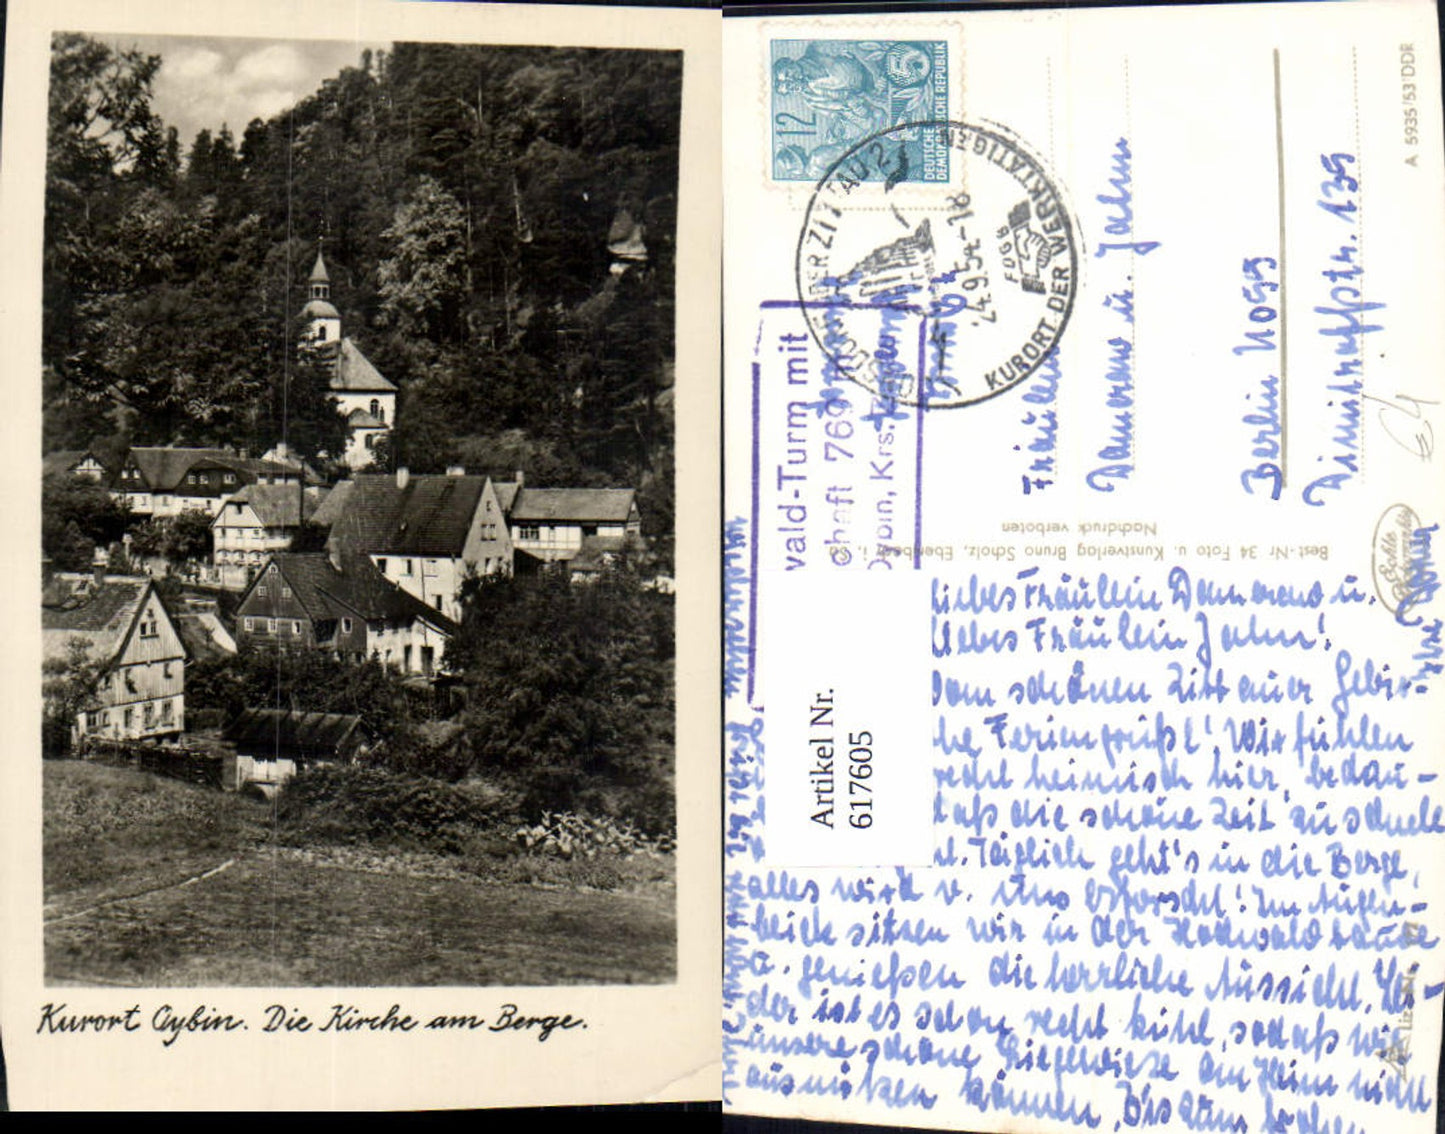 Kurort Oybin. Die Kirche am Berge.
DEUTSCHE
DEMOKRATISCHE REPUBLIK
12
5
ZITTAU 2
24.9.54-18
FDGB
KURORT DER WERKTÄTIGEN
A 5935/53 DDR
Fräulein
u. Jahn
Berlin NO55
Dimitroffstr. 135
wald-Turm mit
chaft 769
Oybin, Krs.
Best.-Nr 34 Foto u. Kunstverlag Bruno Scholz, Ebersbach i. Sa.
Nachdruck verboten
Echte
Artikel Nr.
617605
Liebes Fräulein u.
liebes Fräulein Jahn!
Vom schönen Zittauer Gebir-
Feriengrüße! Wir fühlen
recht heimisch hier, bedau-
daß die schöne Zeit zu schnell
Täglich geht's in die Berge,
alles wird v. uns erforscht! Im Augen-
blick sitzen wir in der Hochwaldbaude
u. genießen die herrliche Aussicht. Lei-
der ist es schon recht kühl, sodaß wir
unsere schöne Liegewiese am Heim nicht
ausnützen können. Bis zum